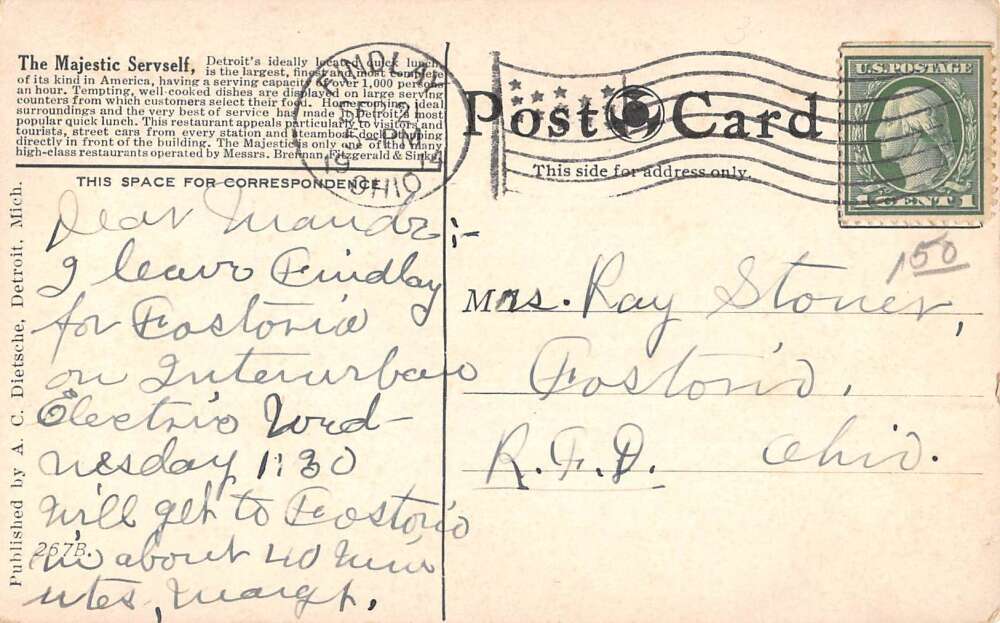 The Majestic Servself, Detroit's ideally located quick lunch,
is the largest, finest and most complete
of its kind in America, having a serving capacity of over 1,000 persons
an hour. Tempting, well-cooked dishes are displayed on large serving
counters from which customers select their food. Home cooking, ideal
surroundings and the very best of service has made it Detroit's most
popular quick lunch. This restaurant appeals particularly to visitors and
tourists, street cars from every station and steamboat dock stopping
directly in front of the building. The Majestic is only one of the many
high-class restaurants operated by Messrs. Brennan, Fitzgerald & Sinks
THIS SPACE FOR CORRESPONDENCE
Dear Maude :-
I leave Findlay
for Fostoria
on Interurban
Electric Wed-
nesday 1:30
Will get to Fostoria
in about 40 min
utes, Margt.
267B.
Published by A. C. Dietsche, Detroit, Mich.
FINDLAY
OHIO
Post Card
This side for address only.
U.S. POSTAGE
1 CENT 1
150
Mrs. Ray Stoner,
Fostoria,
R.F.D. Ohio.